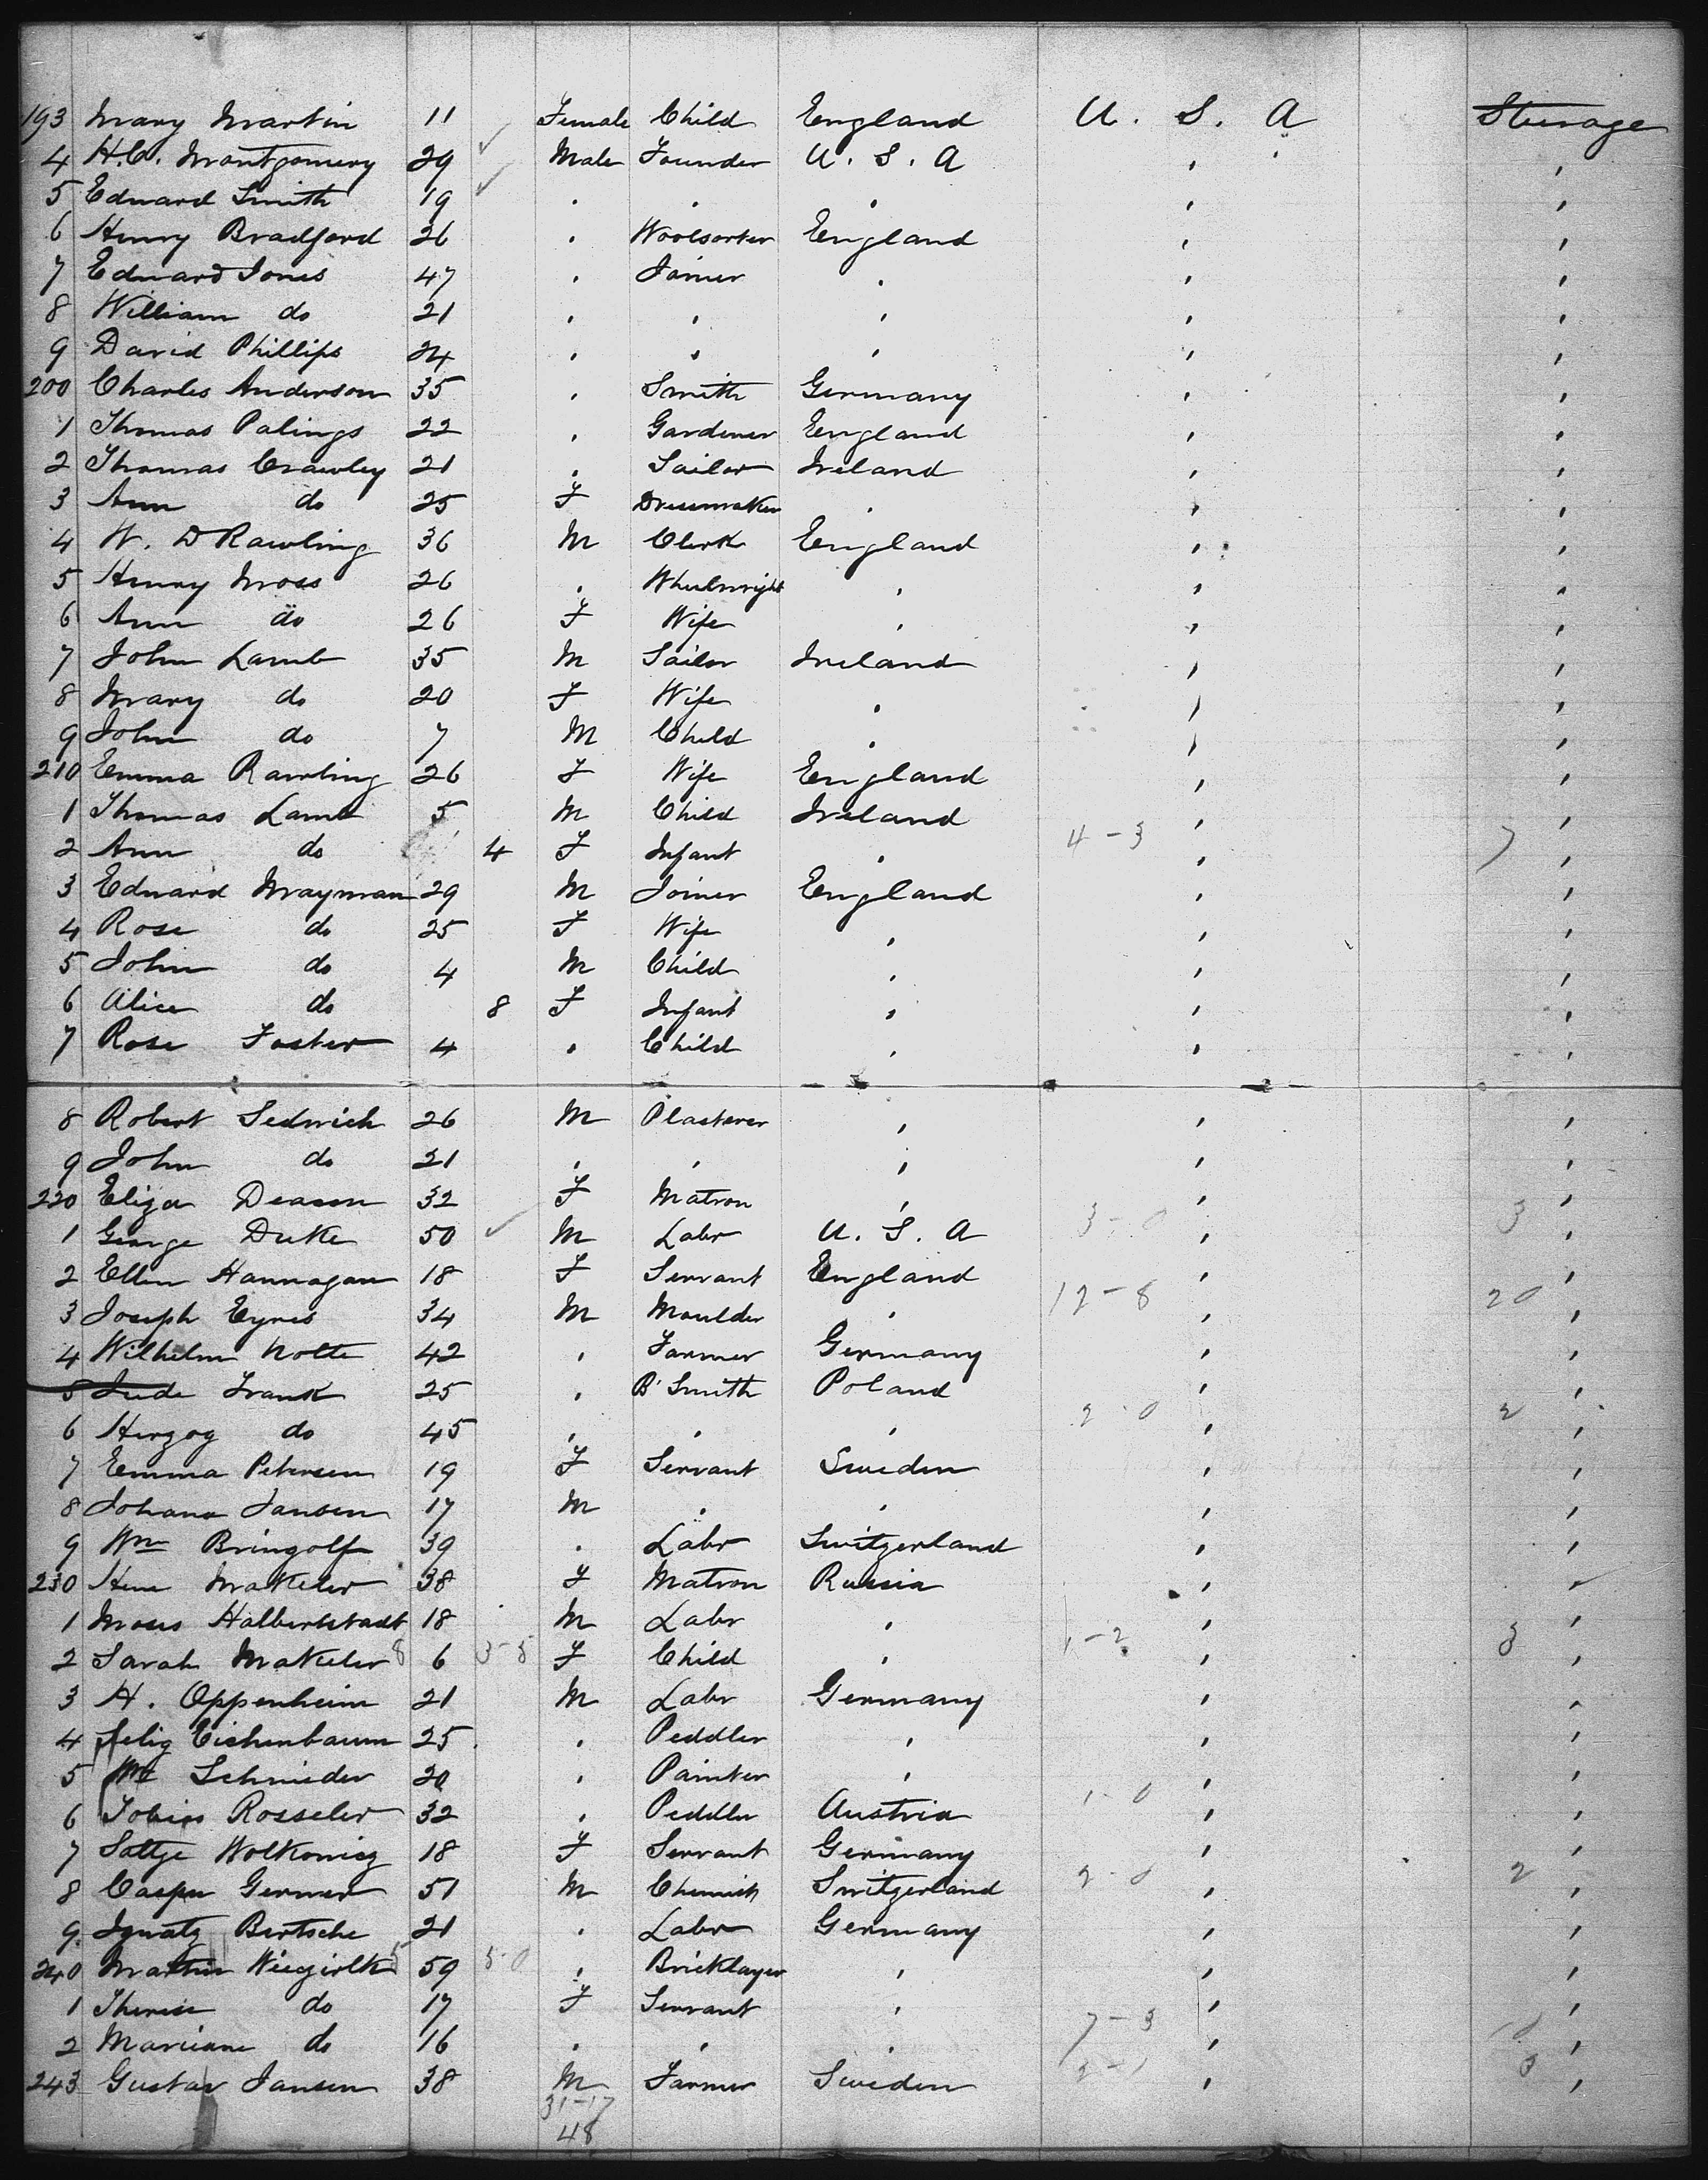 193 Mary Martin 11 Female Child England U. S. A Steerage
4 H.C. Montgomery 29 ✓ Male Founder U. S. A ' '
5 Edward Smith 19 ✓ . . . ' '
6 Henry Bradford 26 . Woolsorter England ' '
7 Edward Jones 47 . Joiner . ' '
8 William do 21 . . . ' '
9 David Phillips 24 . . . ' '
200 Charles Anderson 35 . Smith Germany ' '
1 Thomas Palings 22 . Gardener England ' '
2 Thomas Crawley 21 . Sailor Ireland ' '
3 Ann do 25 F Dressmaker . ' '
4 W. D Rawling 36 M Clerk England ' '
5 Henry Moss 26 . Wheelwright . ' '
6 Ann do 26 F Wife . ' '
7 John Lamb 35 M Sailor Ireland ' '
8 Mary do 20 F Wife . ' '
9 John do 7 M Child . ' '
210 Emma Rawling 26 F Wife England ' '
1 Thomas Lamb 5 M Child Ireland ' '
2 Ann do 4 F Infant . 4-3 ' 7 '
3 Edward Mayman 29 M Joiner England ' '
4 Rose do 25 F Wife . ' '
5 John do 4 M Child . ' '
6 Alice do 8 F Infant . ' '
7 Rose Foster 4 . Child . ' '
8 Robert Sedwich 26 M Plasterer . ' '
9 John do 21 . . . ' '
220 Eliza Deason 32 F Matron . 3-0 ' 3 '
1 George Duke 50 ✓ M Labr U. S. A ' '
2 Ellen Hannagan 18 F Servant England 12-8 ' 20 '
3 Joseph Eyres 34 M Moulder . ' '
4 Wilhelm Nolte 42 . Farmer Germany ' '
5 Jude Frank 25 . B' Smith Poland 2-0 ' 2 '
6 Herzog do 45 . . . ' '
7 Emma Petersen 19 F Servant Sweden ' '
8 Johana Jansen 17 M . . ' '
9 Wm Bringolf 39 . Labr Switzerland ' '
230 Makeler 38 F Matron Russia ' '
1 Moses Halberstadt 18 M Labr . ' '
2 Sarah Makeler 8 6 3-5 F Child . 1-2 ' 3 '
3 H. Oppenheim 21 M Labr Germany ' '
4 Selig Eichenbaum 25 . Peddler . ' '
5 Wm Schnieder 20 . Painter . 1-0 ' '
6 Tobias Rosseler 32 . Peddler Austria ' '
7 Wolkowicz 18 F Servant Germany 2-0 ' 2 '
8 Casper Germer 51 M Chemist Switzerland ' '
9 Ignatz Bertsche 21 . Labr Germany ' '
240 Martin 5 59 5-0 . Bricklayer . ' '
1 Therese do 17 F Servant . 7-3 ' 10 '
2 Mariane do 16 . . . ' '
243 Gustav Jansen 38 M Farmer Sweden 2-1 ' 3 '
31-17
48